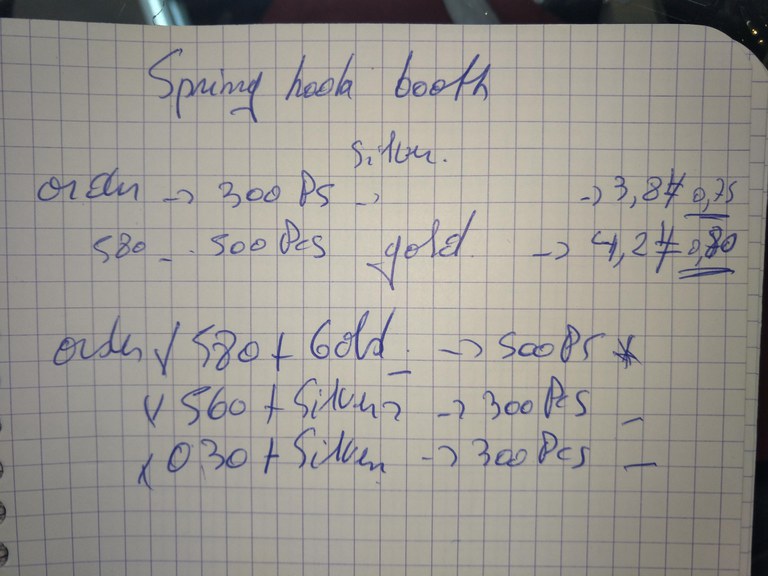 Spring hook booth
silver.
order → 300 Ps → → 3,8 ≠ 0,75
580 - . 500 Pcs gold. → 4,2 ≠ 0,80
order √ 580 + Gold - → 500 Ps *
√ 560 + Silver → 300 Pcs -
√ 030 + Silver → 300 Pcs -